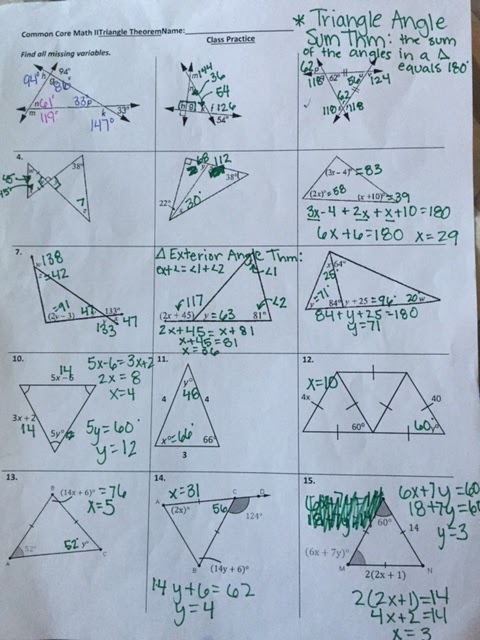 Common Core Math II Triangle Theorem Name:
Class Practice
* Triangle Angle
Sum Thm: the sum
of the angles in a Δ
equals 180°
Find all missing variables.
94°
94°
86°
h
g
n
61°
m
119°
33°
p
k
33°
147°
m
144
36
54
h
g
f
126
54°
62
118°
62°
56
124
62
118
118
4.
38°
45°
45°
7
68
112
38°
22°
30°
(3x - 4)° = 83
(2x)° = 58
(x + 10)° = 39
3x - 4 + 2x + x + 10 = 180
6x + 6 = 180 x = 29
7.
138
= 42
= 91
(2y - 3)
42
133°
47
133
Δ Exterior Angle Thm:
ext∠ = ∠1 + ∠2
∠1
∠2
117
(2x + 45)
y = 63
81°
2x + 45 = x + 81
x + 45 = 81
x = 36
64°
25
= 71°
84°
y + 25 = 96°
20°
w
84 + y + 25 = 180
y = 71
10.
14
5x - 6
5x - 6 = 3x + 2
2x = 8
x = 4
3x + 2
14
5y°
5y = 60°
y = 12
11.
y°
48
4
4
x° = 66°
66°
3
12.
x = 10
4x
40
60°
60
13.
B
(14x + 6)° = 76
x = 5
52°
52° y°
A
C
14.
A
x = 31
(2x)°
C
D
56
124°
B
(14y + 6)°
14y + 6 = 62
y = 4
15.
6x + 7y = 60
18 + 7y = 60
y = 3
60°
14
(6x + 7y)°
M
N
2(2x + 1)
2(2x + 1) = 14
4x + 2 = 14
x = 3